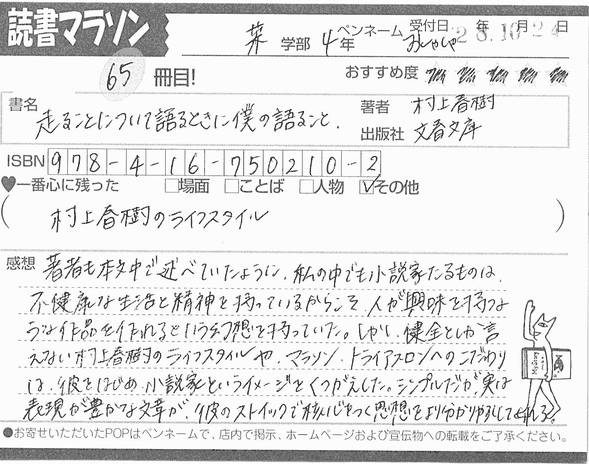 読書マラソン
薬 学部 4年 ペンネーム おしゃしゃ 受付日 28年10月24日
65 冊目!
おすすめ度
書名 走ることについて語るときに僕の語ること.
著者 村上春樹
出版社 文春文庫
ISBN 978-4-16-750210-2
♥一番心に残った □場面 □ことば □人物 ☑その他
(村上春樹のライフスタイル)
感想 著者も本文中で述べていたように、私の中でも小説家たるものは、
不健康な生活と精神を持っているからこそ、人が興味を持つよ
うな作品を作れるという幻想を持っていた。しかし、健全としか言
えない村上春樹のライフスタイルや、マラソン、トライアスロンへのこだわり
は、彼をはじめ、小説家というイメージをくつがえした。シンプルだが実は
表現が豊かな文章が、彼のストイックで核心をつく思想をより分かりやすくしてくれる。
●お寄せいただいたPOPはペンネームで、店内で掲示、ホームページおよび宣伝物への転載をご了承ください。